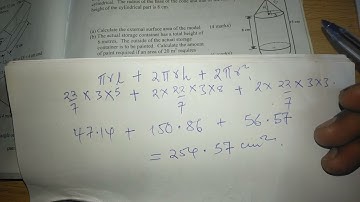 height of the cylindrical part is 8 cm
(a) Calculate the external surface area of the model. (4 marks)
(b) The actual storage container has a total height of
6 metres. The outside of the actual storage
container is to be painted. Calculate the amount
of paint required if an area of 20 m² requires
πrl + 2πrh + 2πr².
22/7 × 3 × 5 + 2 × 22/7 × 3 × 8 + 2 × 22/7 × 3 × 3.
47.14 + 150.86 + 56.57
= 254.57 cm².